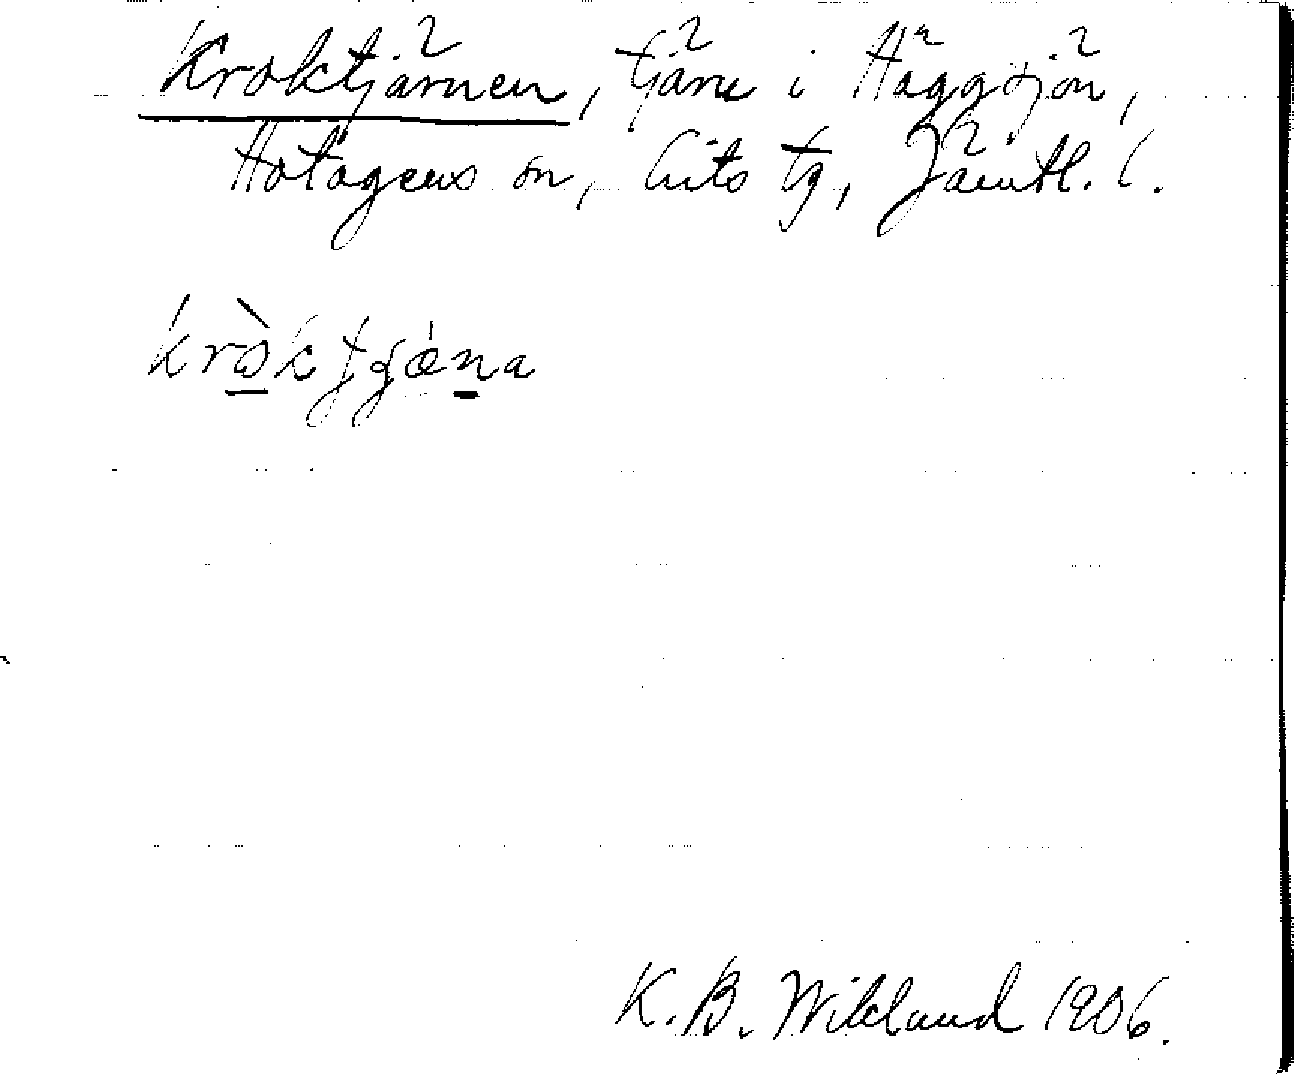 Kroktjärnen, tjärn i Häggsjön,
Hotagens sn, Lits tg, Jämtl. l.
krò̠ktjǽn̠a
K. B. Wiklund 1906.